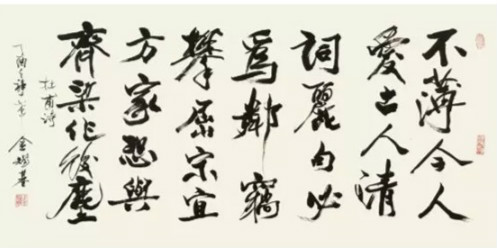 不薄今人
愛古人清
詞麗句必
爲鄰竊
攀屈宋宜
方家恐與
齊梁作後塵
杜甫詩
丁酉 金耀基